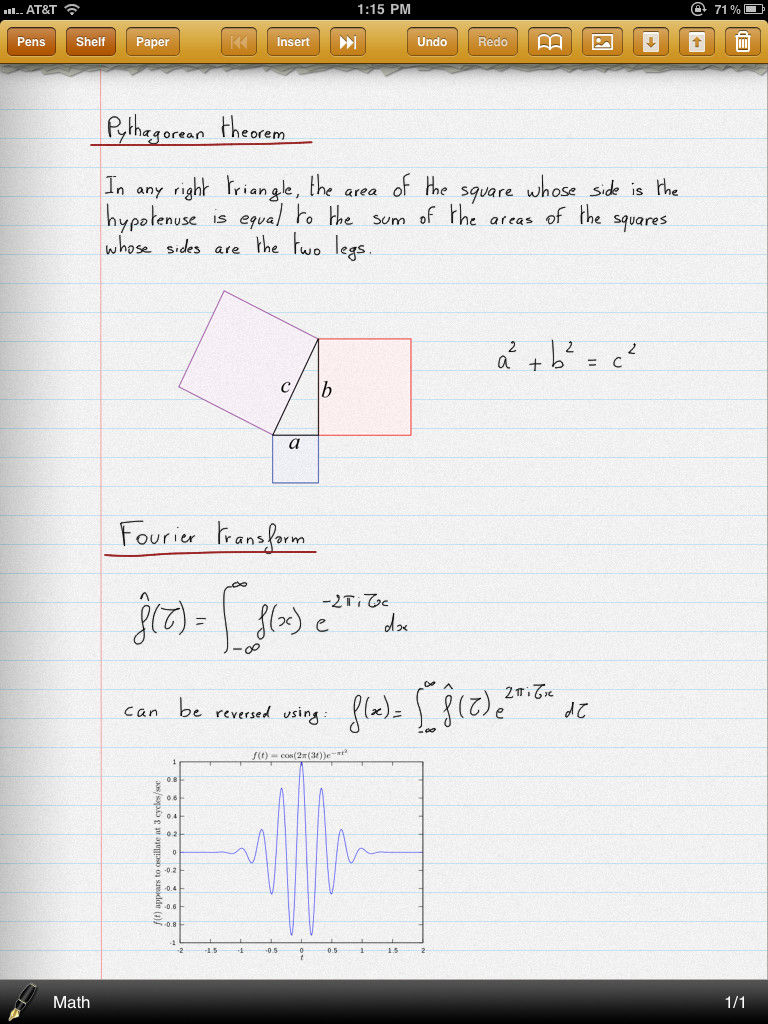 AT&T 1:15 PM 71%
Pens Shelf Paper Insert Undo Redo
Pythagorean theorem
In any right triangle, the area of the square whose side is the
hypotenuse is equal to the sum of the areas of the squares
whose sides are the two legs.
c b
a
a² + b² = c²
Fourier transform
f̂(τ) = ∫_{-∞}^{∞} f(x) e^{-2πiτx} dx
can be reversed using: f(x) = ∫_{-∞}^{∞} f̂(τ) e^{2πiτx} dτ
f(t) = cos(2π(3t))e^{-πt²}
f(t) appears to oscillate at 3 cycles/sec
1
0.8
0.6
0.4
0.2
0
-0.2
-0.4
-0.6
-0.8
-1
-2 -1.5 -1 -0.5 0 0.5 1 1.5 2
t
Math 1/1